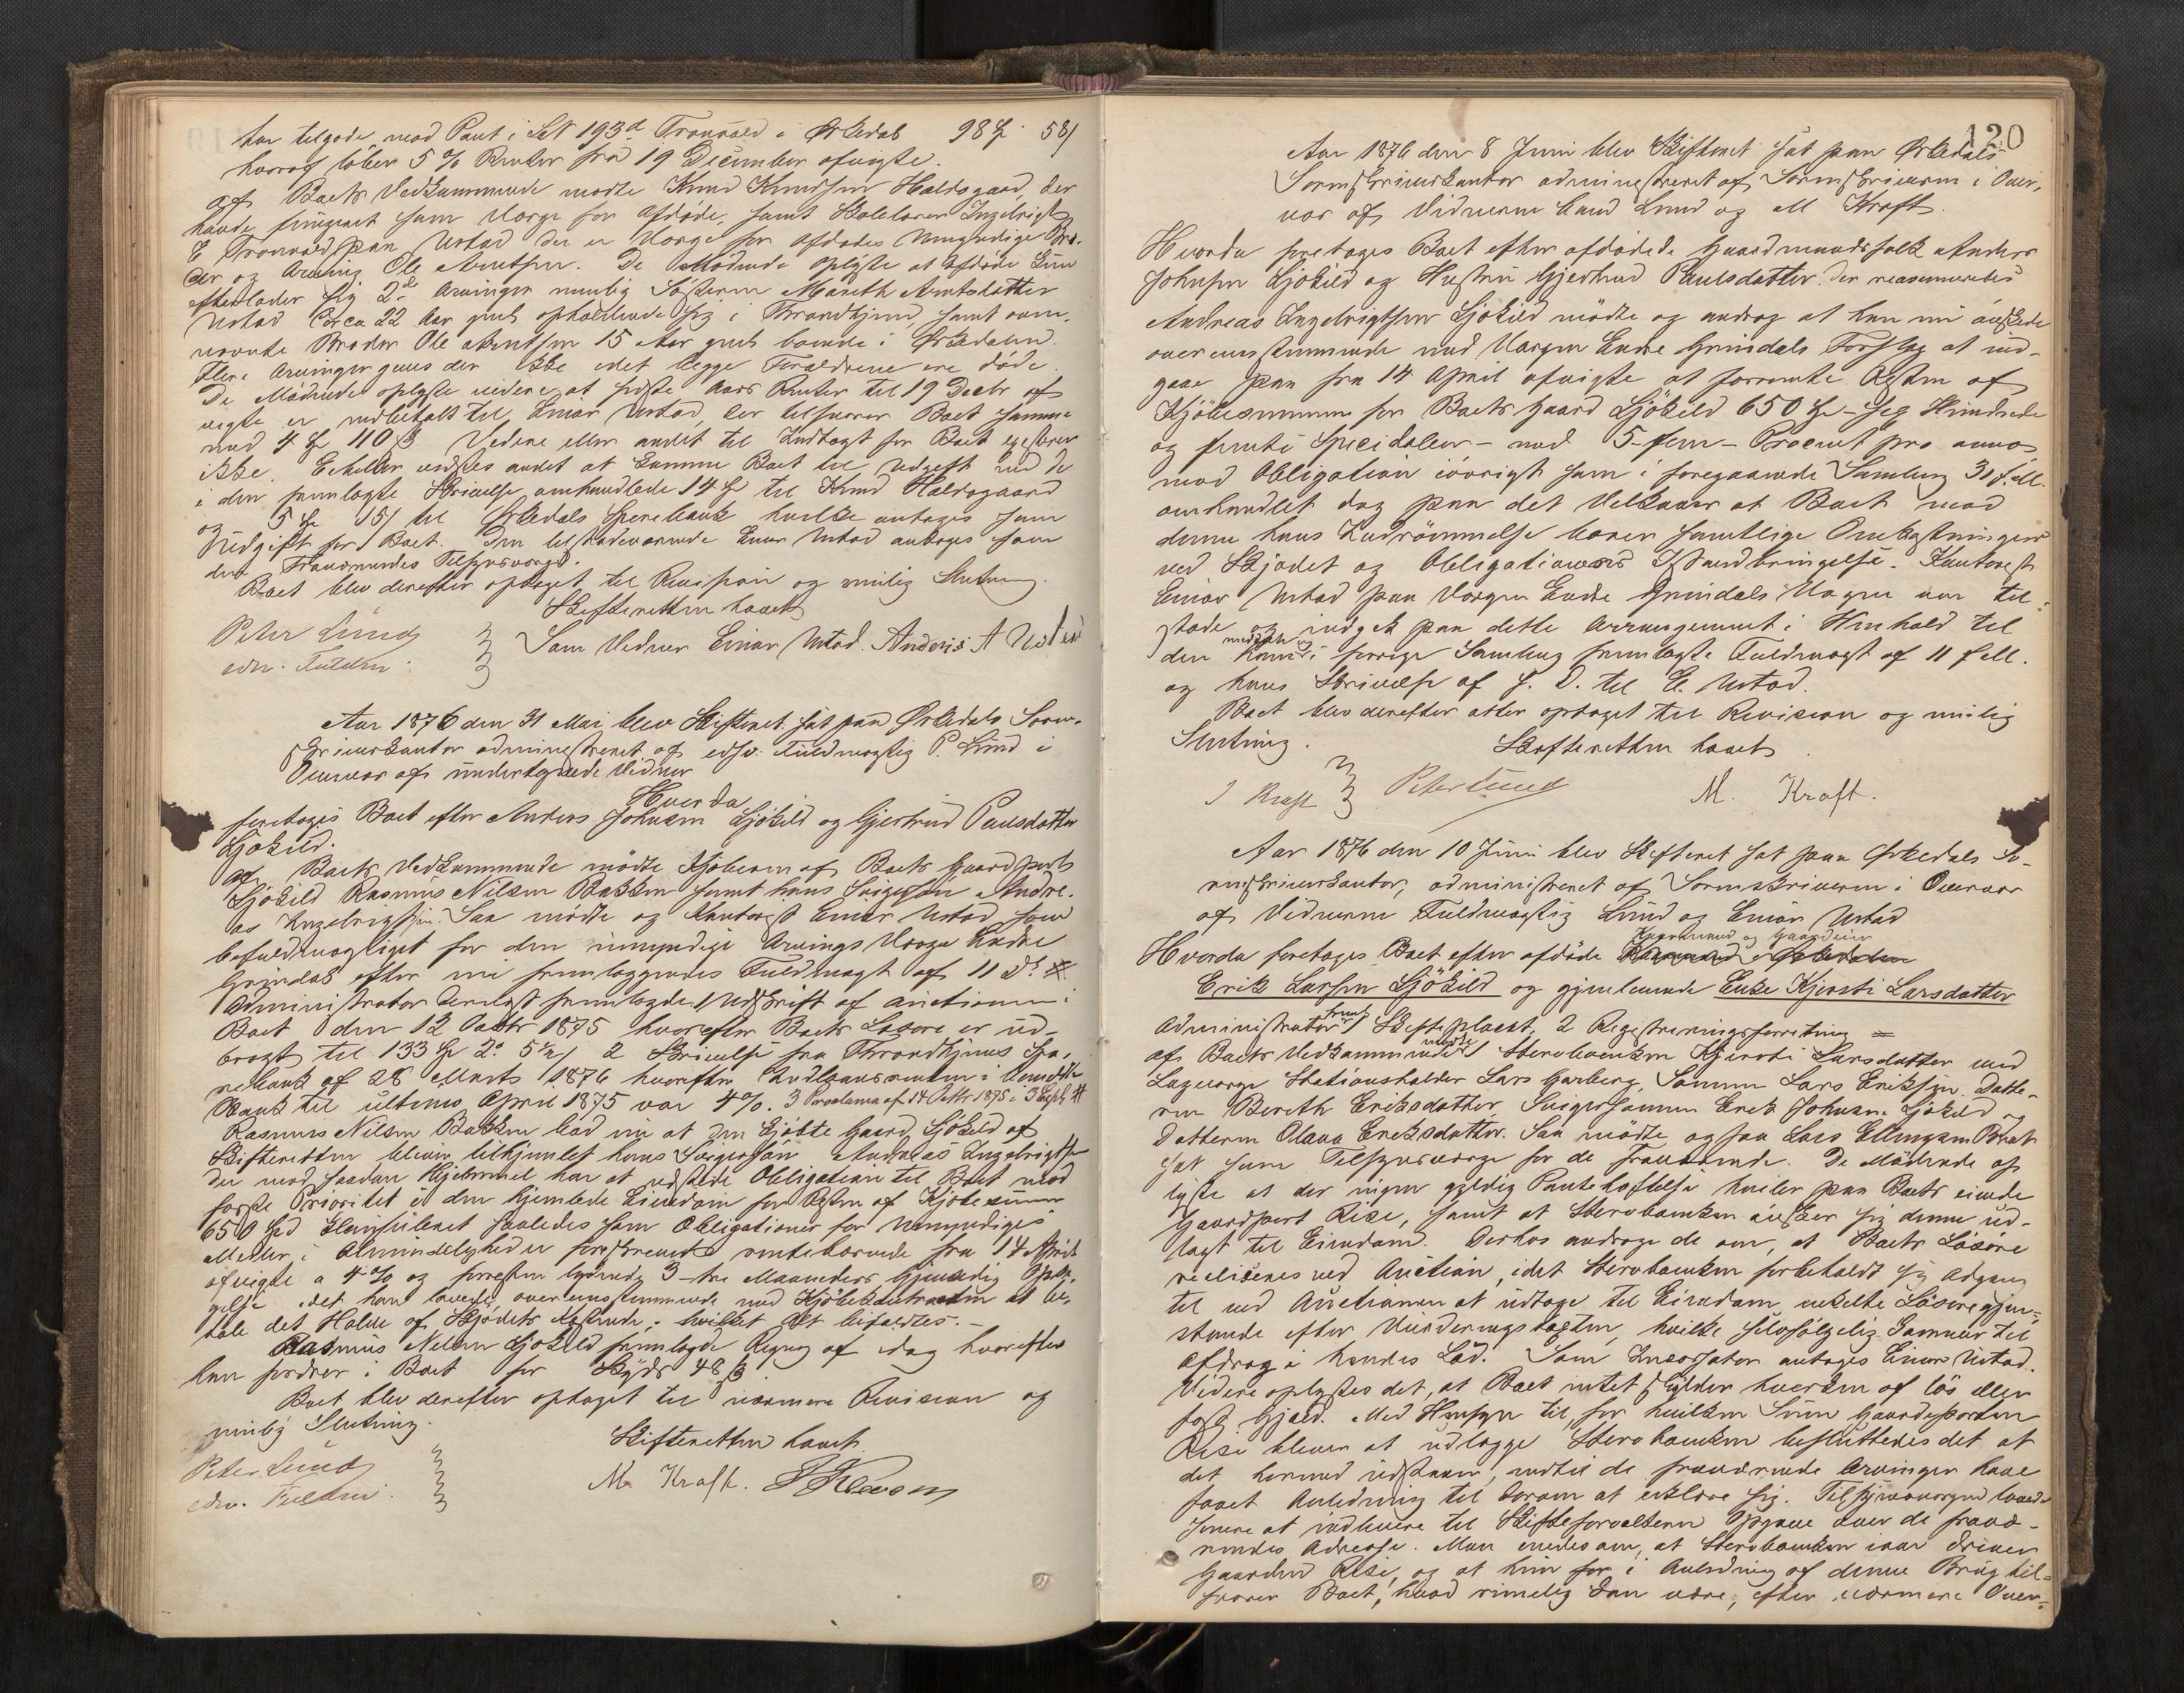 har tilgode mod Pant i LN 193d Tronvold i Ørkedal 98 58
hvoraf løber 5 % Renter fra 19 December afvigte.
af Boets Vedkommende mødte Knud Knudsen Haldsgaard, der
havde fungeret som Værge for Afdøde, samt Skolelærer Ingebrigt
E Tronvold paa Ustad der er Værge for Afdødes umyndige Bro-
der og Arving Ole Arntsen. De Mødende oplyste at Afdøde kun
efterlader sig 2de Arvinger nemlig Søsteren Mareth Arntsdatter
Ustad Circa 22 Aar gml opholdende sig i Throndhjem, samt oven-
nævnte Broder Ole Arntsen 15 Aar gml boende i Ørkedalen.
Flere Arvinger gives der ikke idet begge Forældrene ere døde.
De Mødende oplyste videre at sidste Aars Renter til 19 Decbr af-
vigte er indbetalt til Einar Ustad, der tilsvarer Boet samme
med 4 110 ß Videre eller andet til Indtægt for Boet existerer
ikke. Ei heller vidstes andet at komme Boet til Udgift end de
i den fremlagte Skrivelse omhandlede 14 til Knud Haldsgaard
og 5 15 til Ørkedals Sparebank hvilke antages som
Udgift for Boet. Den tilstedeværende Einar Ustad antages som
den Fraværendes Tilsynsværge.
Boet blev derefter optaget til Revision og endelig Slutning.
Skifteretten hævet
Peter Lund Som Vidner Einar Ustad. Anders A Ustad
edsv. Fuldm.
Aar 1876 den 31 Mai blev Skifteret sat paa Ørkedals Soren-
skriverkontor administreret af edsv. Fuldmægtig P. Lund i
Overvær af undertegnede Vidner
Hvorda
foretoges Boet efter Anders Johnsen Ljøkild og Gjertrud Paulsdatter
Ljøkild.
af Boets Vedkommende mødte Kjøberen af Boets Gaardpart
Ljøkild Rasmus Nilsen Bakken samt hans Svigersøn Andre-
as Ingebrigtsen. Saa mødte og Kontorist Einar Ustad som
befuldmægtiget for den umyndige Arvings Værge Endre
Grindal efter nu fremlæggendes Fuldmagt af 11 d.
Administrator dernæst fremlagde 1 Udskrift af Auctionen i
Boet den 12 Octbr 1875 hvorefter Boets Løsøre er ud-
bragt til 133 2 5½ 2 Skrivelse fra Throndhjems Spa-
rebank af 28 Marts 1876 hvorefter Indlaansrenten i bemeldte
Bank til ultimo April 1875 var 4 %. 3 Proclama af 14 Octbr 1875 i 3
Rasmus Nilsen Bakken bad nu at den kjøbte Gaard Ljøkild af
Skifteretten bliver tilhjemlet hans Svigersøn Andreas Ingebrigtsen
der mod saadan Hjemmel har at udstede Obligation til Boet mod
første Prioritet i den hjemlede Eiendom for Resten af Kjøbesummen
650 Spd Klausuleret saaledes som Obligationer for Umyndiges
Midler i Almindelighed er foreskrevet rentebærende fra 14 April
afvigte a 4 % og forresten lydende 3 - tre Maaneders gjensidig Opsi-
gelse idet han lovede overensstemmende med Kjøbekontrakten at be-
tale det Halve af Skjødets Kostende; hvilket Alt bifaldtes. -
Rasmus Nilsen Ljøkild fremlagde Regning af idag hvorefter
han fordrer i Boet for Skyds 48 ß.
Boet blev derefter optaget til nærmere Revision og
endelig Slutning.
Skifteretten hævet
Peter Lund
edsv. Fuldm. M. Kraft.
120
Aar 1876 den 8 Juni blev Skifteret sat paa Ørkedals
Sorenskriverkontor administreret af Sorenskriveren i Over-
vær af Vidnerne Cand Lund og M Kraft.
Hvorda foretages Boet efter afdødede Gaardmandsfolk Anders
Johnsen Ljøkild og Hustru Gjertrud Paulsdatter.
Andreas Ingebrigtsen Ljøkild mødte og androg at han nu ønskede
overensstemmende med Værgen Endre Grindals Forslag at ind-
gaae paa fra 14 April afvigte at forrente Resten af
Kjøbesummen for Boets Gaard Ljøkild 650 - sex Hundrede
og femti Speciedaler - med 5 - fem - Procent pro anno
mod Obligation iøvrigt som i foregaaende Samling 31 f. M.
omhandlet dog paa det Velkaar at Boet mod
denne hans Indrømmelse bærer samtlige Omkostninger
ved Skjødet og Obligationens Istandbringelse. Kontorist
Einar Ustad paa Værgen Endre Grindals Vegne var til-
stede og indgik paa dette Arrangement i Henhold til
den ham i forrige Samling fremlagte Fuldmagt af 11 f. M.
og hans Skrivelse af s. D. til E. Ustad.
Boet blev derefter atter optaget til Revision og endelig
Slutning. Skifteretten hævet.
J Kraft Peter Lund M. Kraft.
Aar 1876 den 10 Juni blev Skifteret sat paa Ørkedals So-
renskriverkontor, administreret af Sorenskriveren i Overvær
af Vidnerne Fuldmægtig Lund og Einar Ustad
Hvorda foretages Boet efter afdøde Kaarmand og Gaardeier
Erik Larsen Ljøkild og gjenlevende Enke Kjersti Larsdatter
Administrator frml 1 Skifteplacat, 2 Registreringsforretning =
af Boets Vedkommende mødte Stervboenken Kjersti Larsdatter med
Lagværge Stationsholder Lars Garberg, Sønnen Lars Eriksen, Datte-
ren Bereth Eriksdatter, Svigersønnen Erik Johnsen Ljøkild og
Datteren Olava Eriksdatter. Saa mødte ogsaa Lars Ellingsen Brat-
set som Tilsynsværge for de fraværende. De Mødende op-
lyste at der ingen gyldig Panteheftelse hviler paa Boets eiende
Gaardpart Rise, samt at Stervboenken ønsker sig denne ud-
lagt til Eiendom. Derhos androge de om, at Boets Løsøre
realiseres ved Auction, idet Stervboenken forbeholdt sig Adgang
til ved Auctionen at udtage til Eiendom enkelte Løsøregjen-
stande efter Vurderingstaxten, hvilke selvfølgelig kommer til
Afdrag i hendes Lod. Som Incassator antages Einar Ustad.
Videre oplystes det, at Boet intet skylder hverken af løs eller
fast Gjæld. Med Hensyn til for hvilken Sum Gaardeparten
Rise bliver at udlægge Stervboenken besluttedes det at
det hermed udstaaer, indtil de fraværende Arvinger have
faaet Anledning til derom at erklære sig. Tilsynsværgen lovede
senere at indlevere til Skifteforvalteren Opgave over de fravæ-
rendes Adresse. Man enedes om, at Stervboenken iaar driver
Gaarden Rise, og at hun for i Anledning af denne Brug til-
svarer Boet, hvad rimelig kan være, efter nærmere Over-